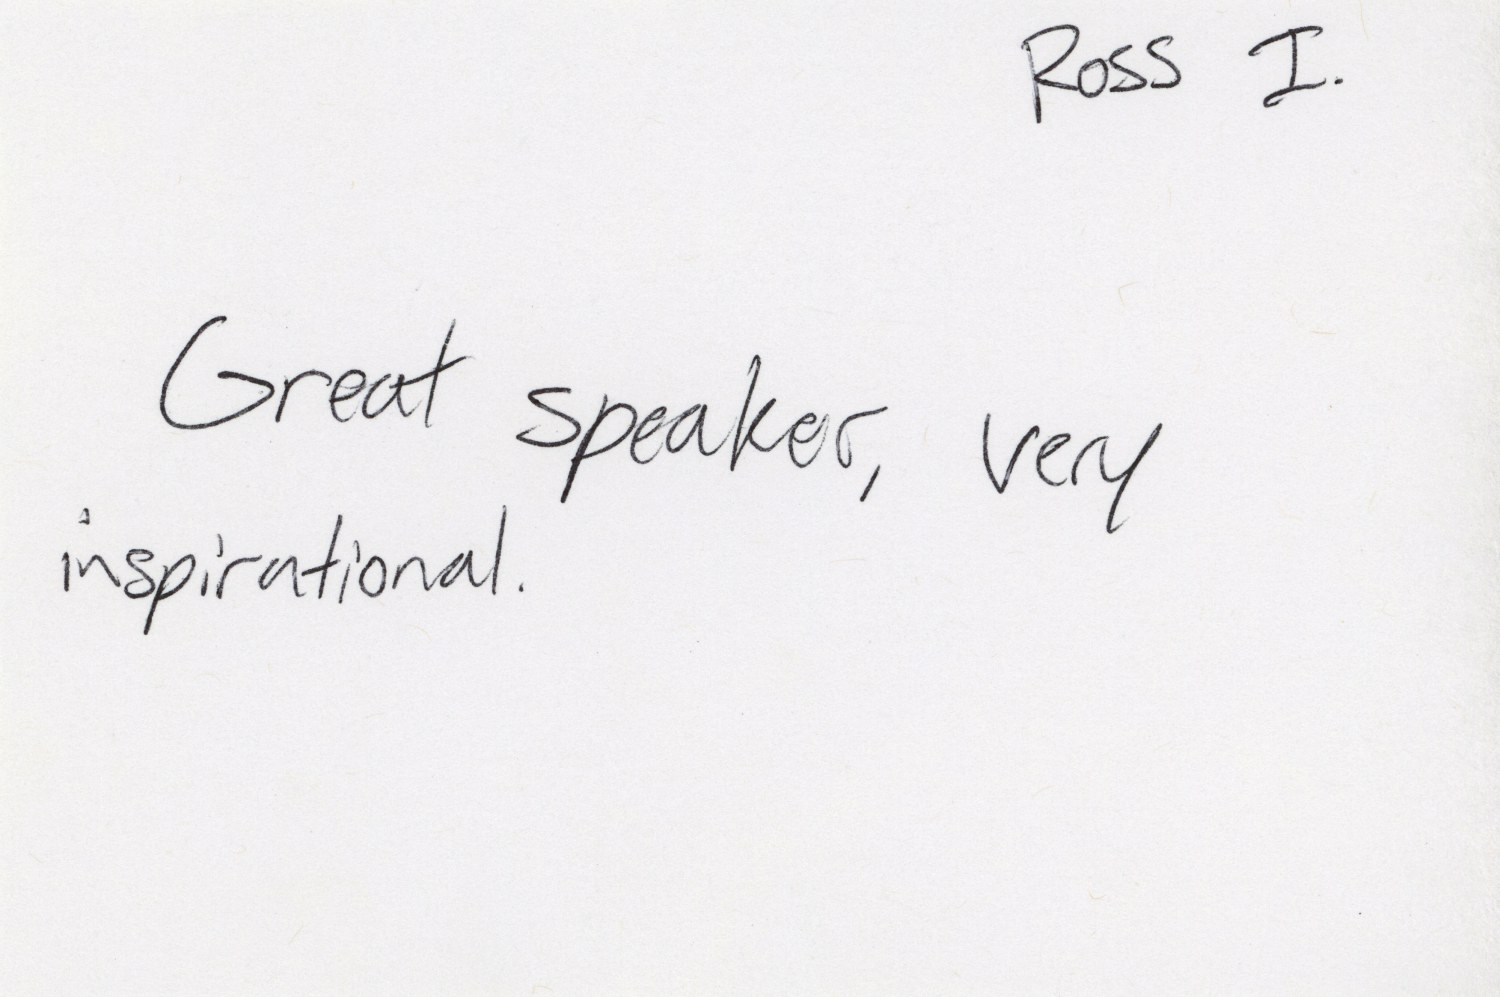 Ross I.
Great speaker, very
inspirational.